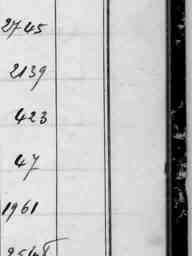 2745
2139
423
47
1961